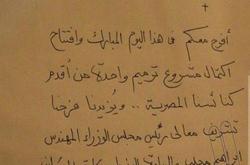 أفرح معكم فى هذا اليوم المبارك وافتتاح
اكتمال مشروع ترميم واحدة من أقدم
كنائسنا المصرية .. ويزيدنا فرحنا
تشريف معالى رئيس مجلس الوزراء المهندس